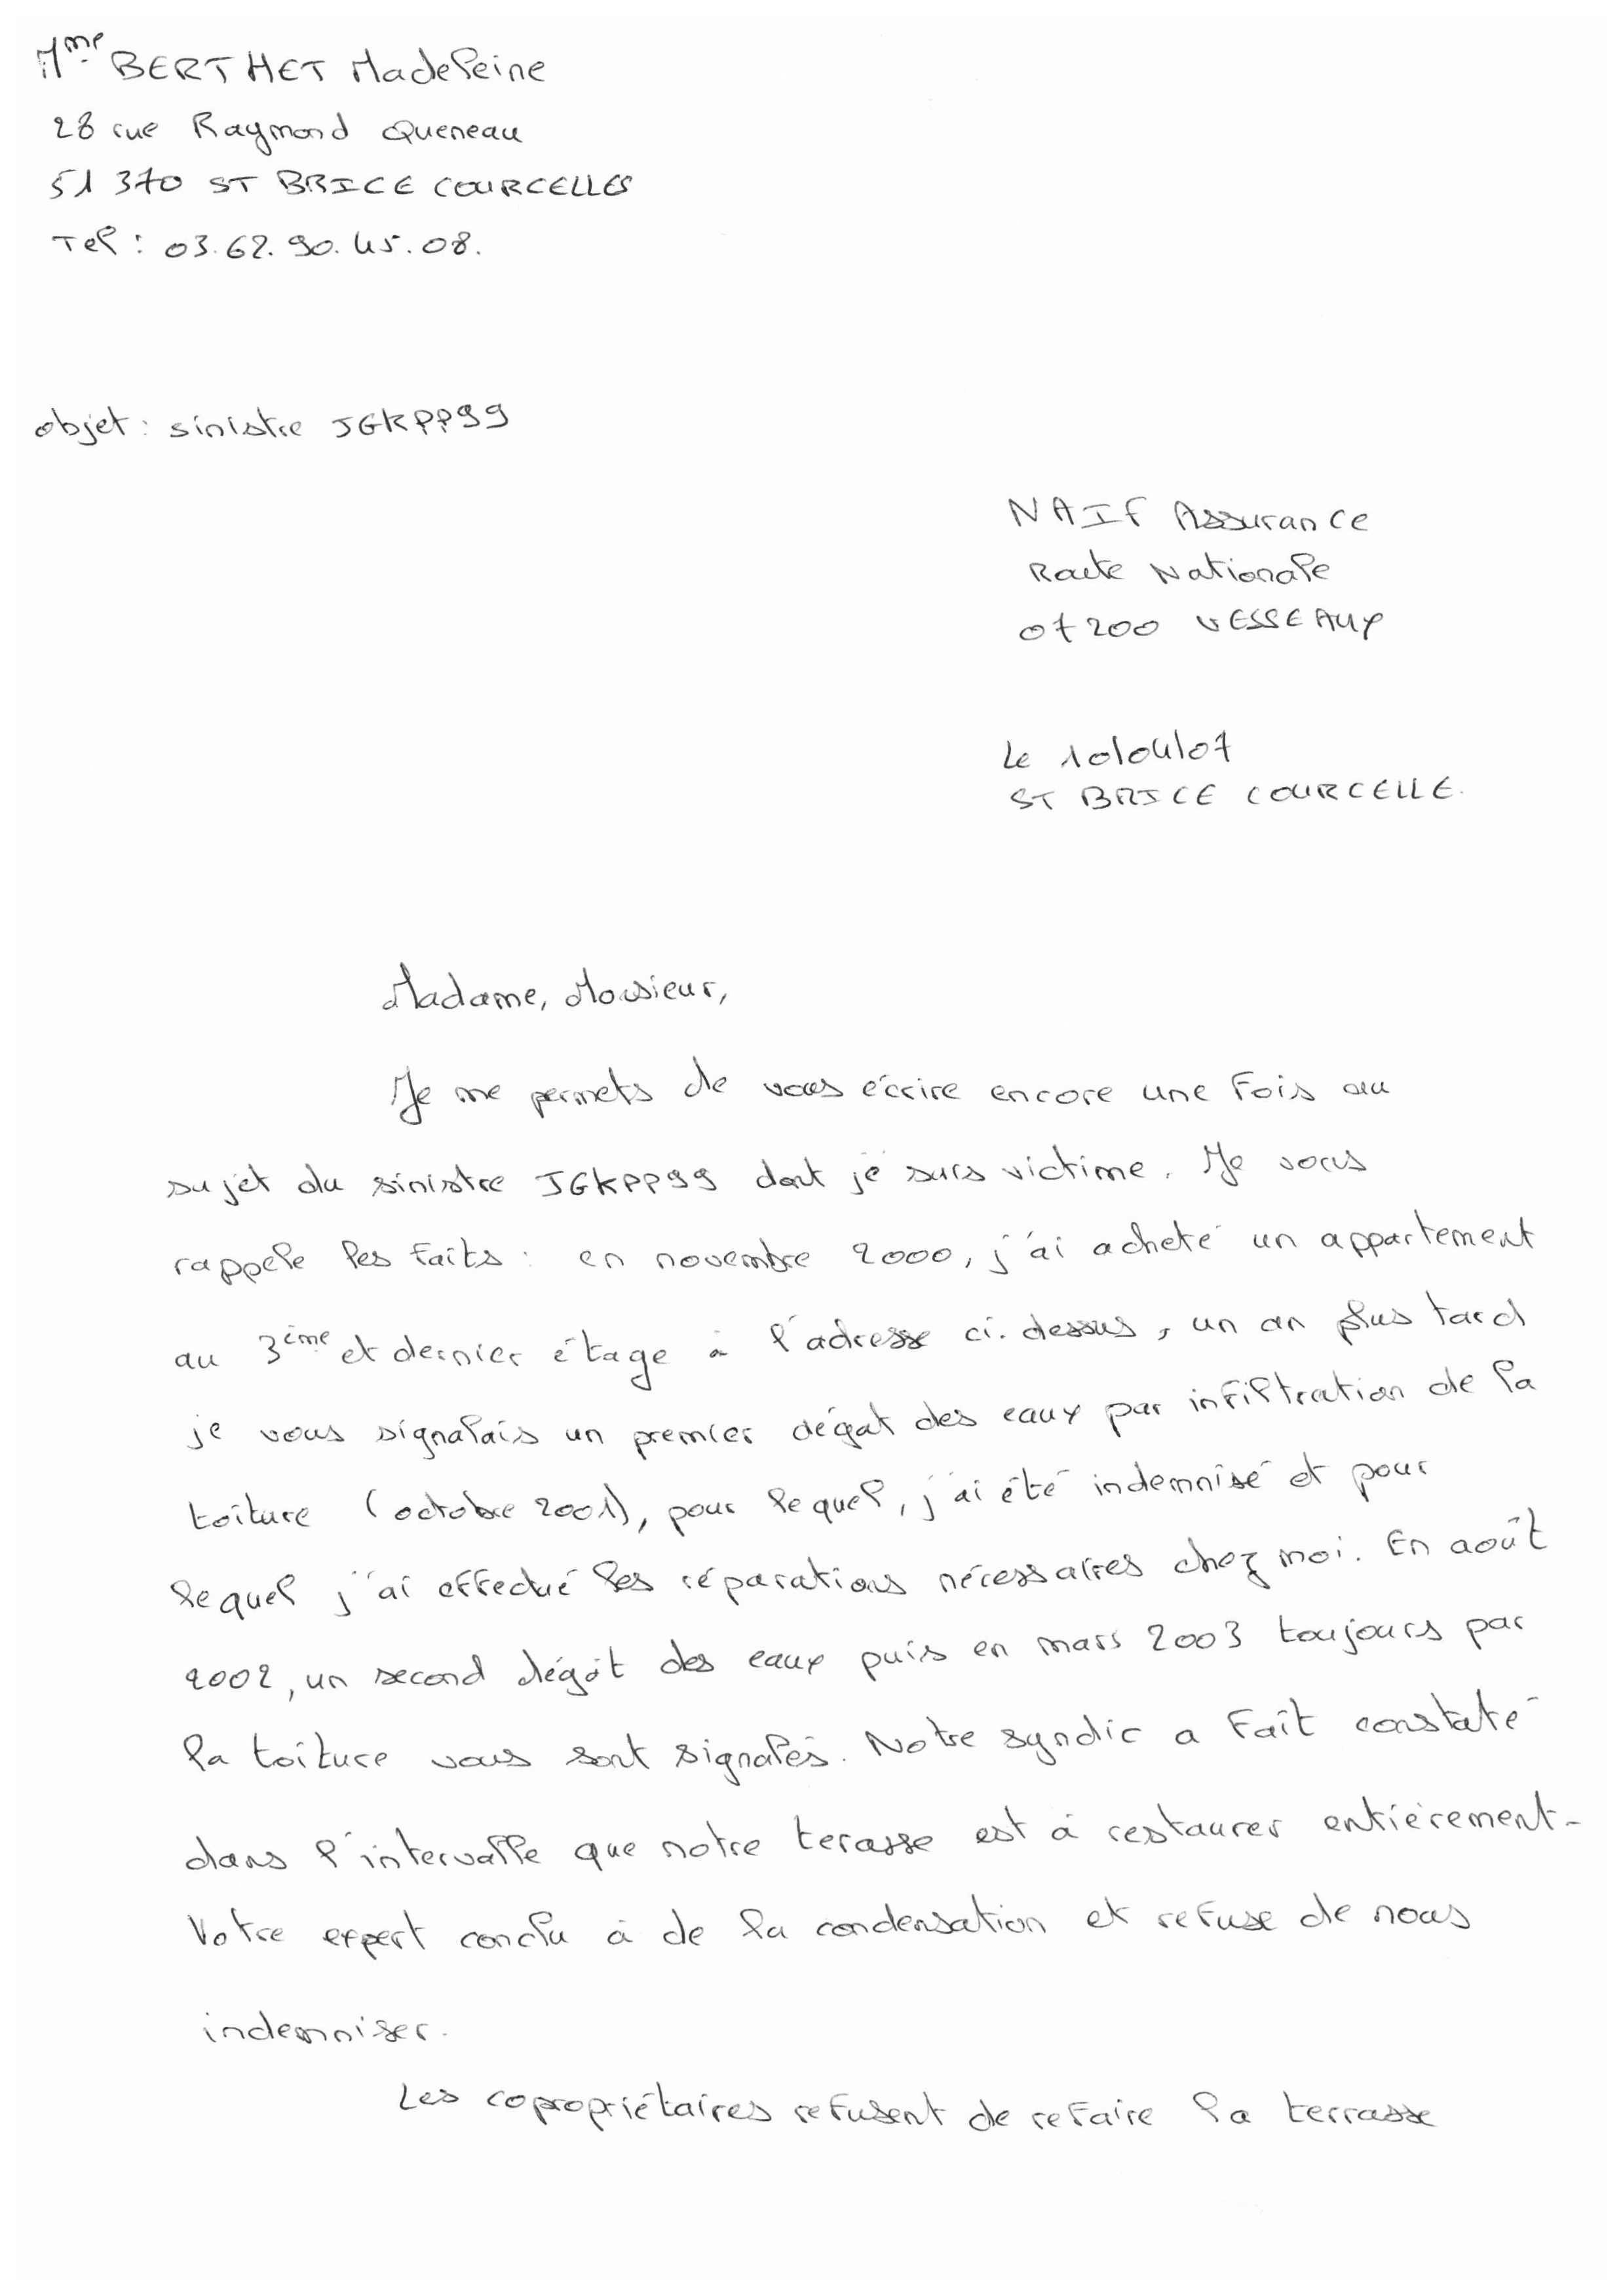 Mme BERTHET Madeleine
28 rue Raymond Queneau
51 370 ST BRICE COURCELLES
Tel : 03.62.90.45.08.
objet : sinistre JGKPP99
NAIF Assurance
Route Nationale
07200 VESSEAUX
Le 10/04/07
ST BRICE COURCELLE.
Madame, Monsieur,
Je me permets de vous écrire encore une fois au
sujet du sinistre JGKPP99 dont je suis victime. Je vous
rappele les faits : en novembre 2000, j'ai acheté un appartement
au 3ème et dernier étage à l'adresse ci-dessus, un an plus tard
je vous signalais un premier dégat des eaux par infiltration de la
toiture (octobre 2001), pour lequel, j'ai été indemnisé et pour
lequel j'ai effectué les réparations nécessaires chez moi. En août
2002, un second dégât des eaux puis en mars 2003 toujours par
la toiture vous sont signalés. Notre syndic a fait constaté
dans l'intervalle que notre terasse est à restaurer entièrement.
Votre expert conclu à de la condensation et refuse de nous
indemniser.
Les copropriétaires refusent de refaire la terrasse